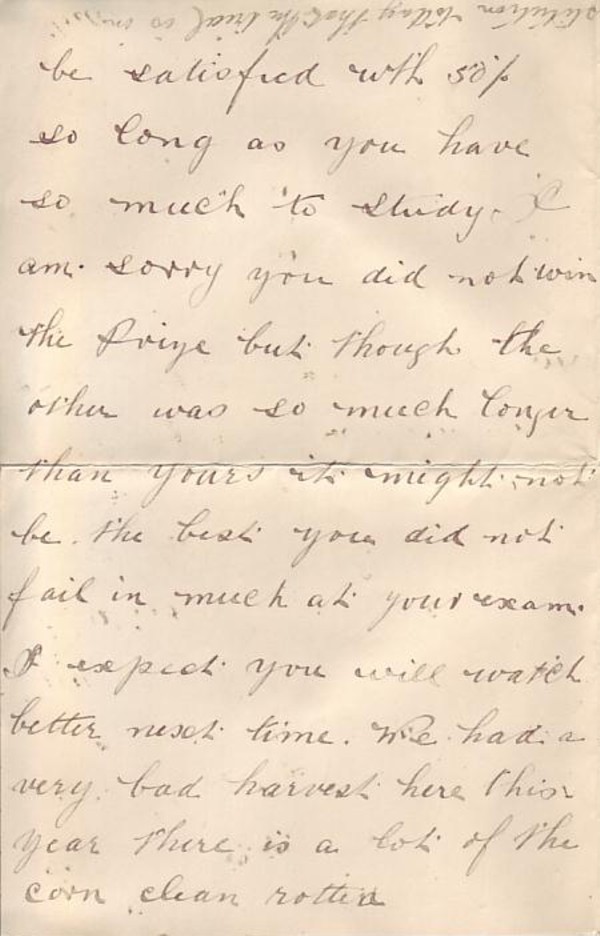 be satisfied wth 50%
so long as you have
so much to study. I
am sorry you did not win
the Prize but though the
other was so much longer
than yours it might not
be the best you did not
fail in much at your exam.
I expect you will watch
better next time. We had a
very bad harvest here this
year there is a lot of the
corn clean rotten